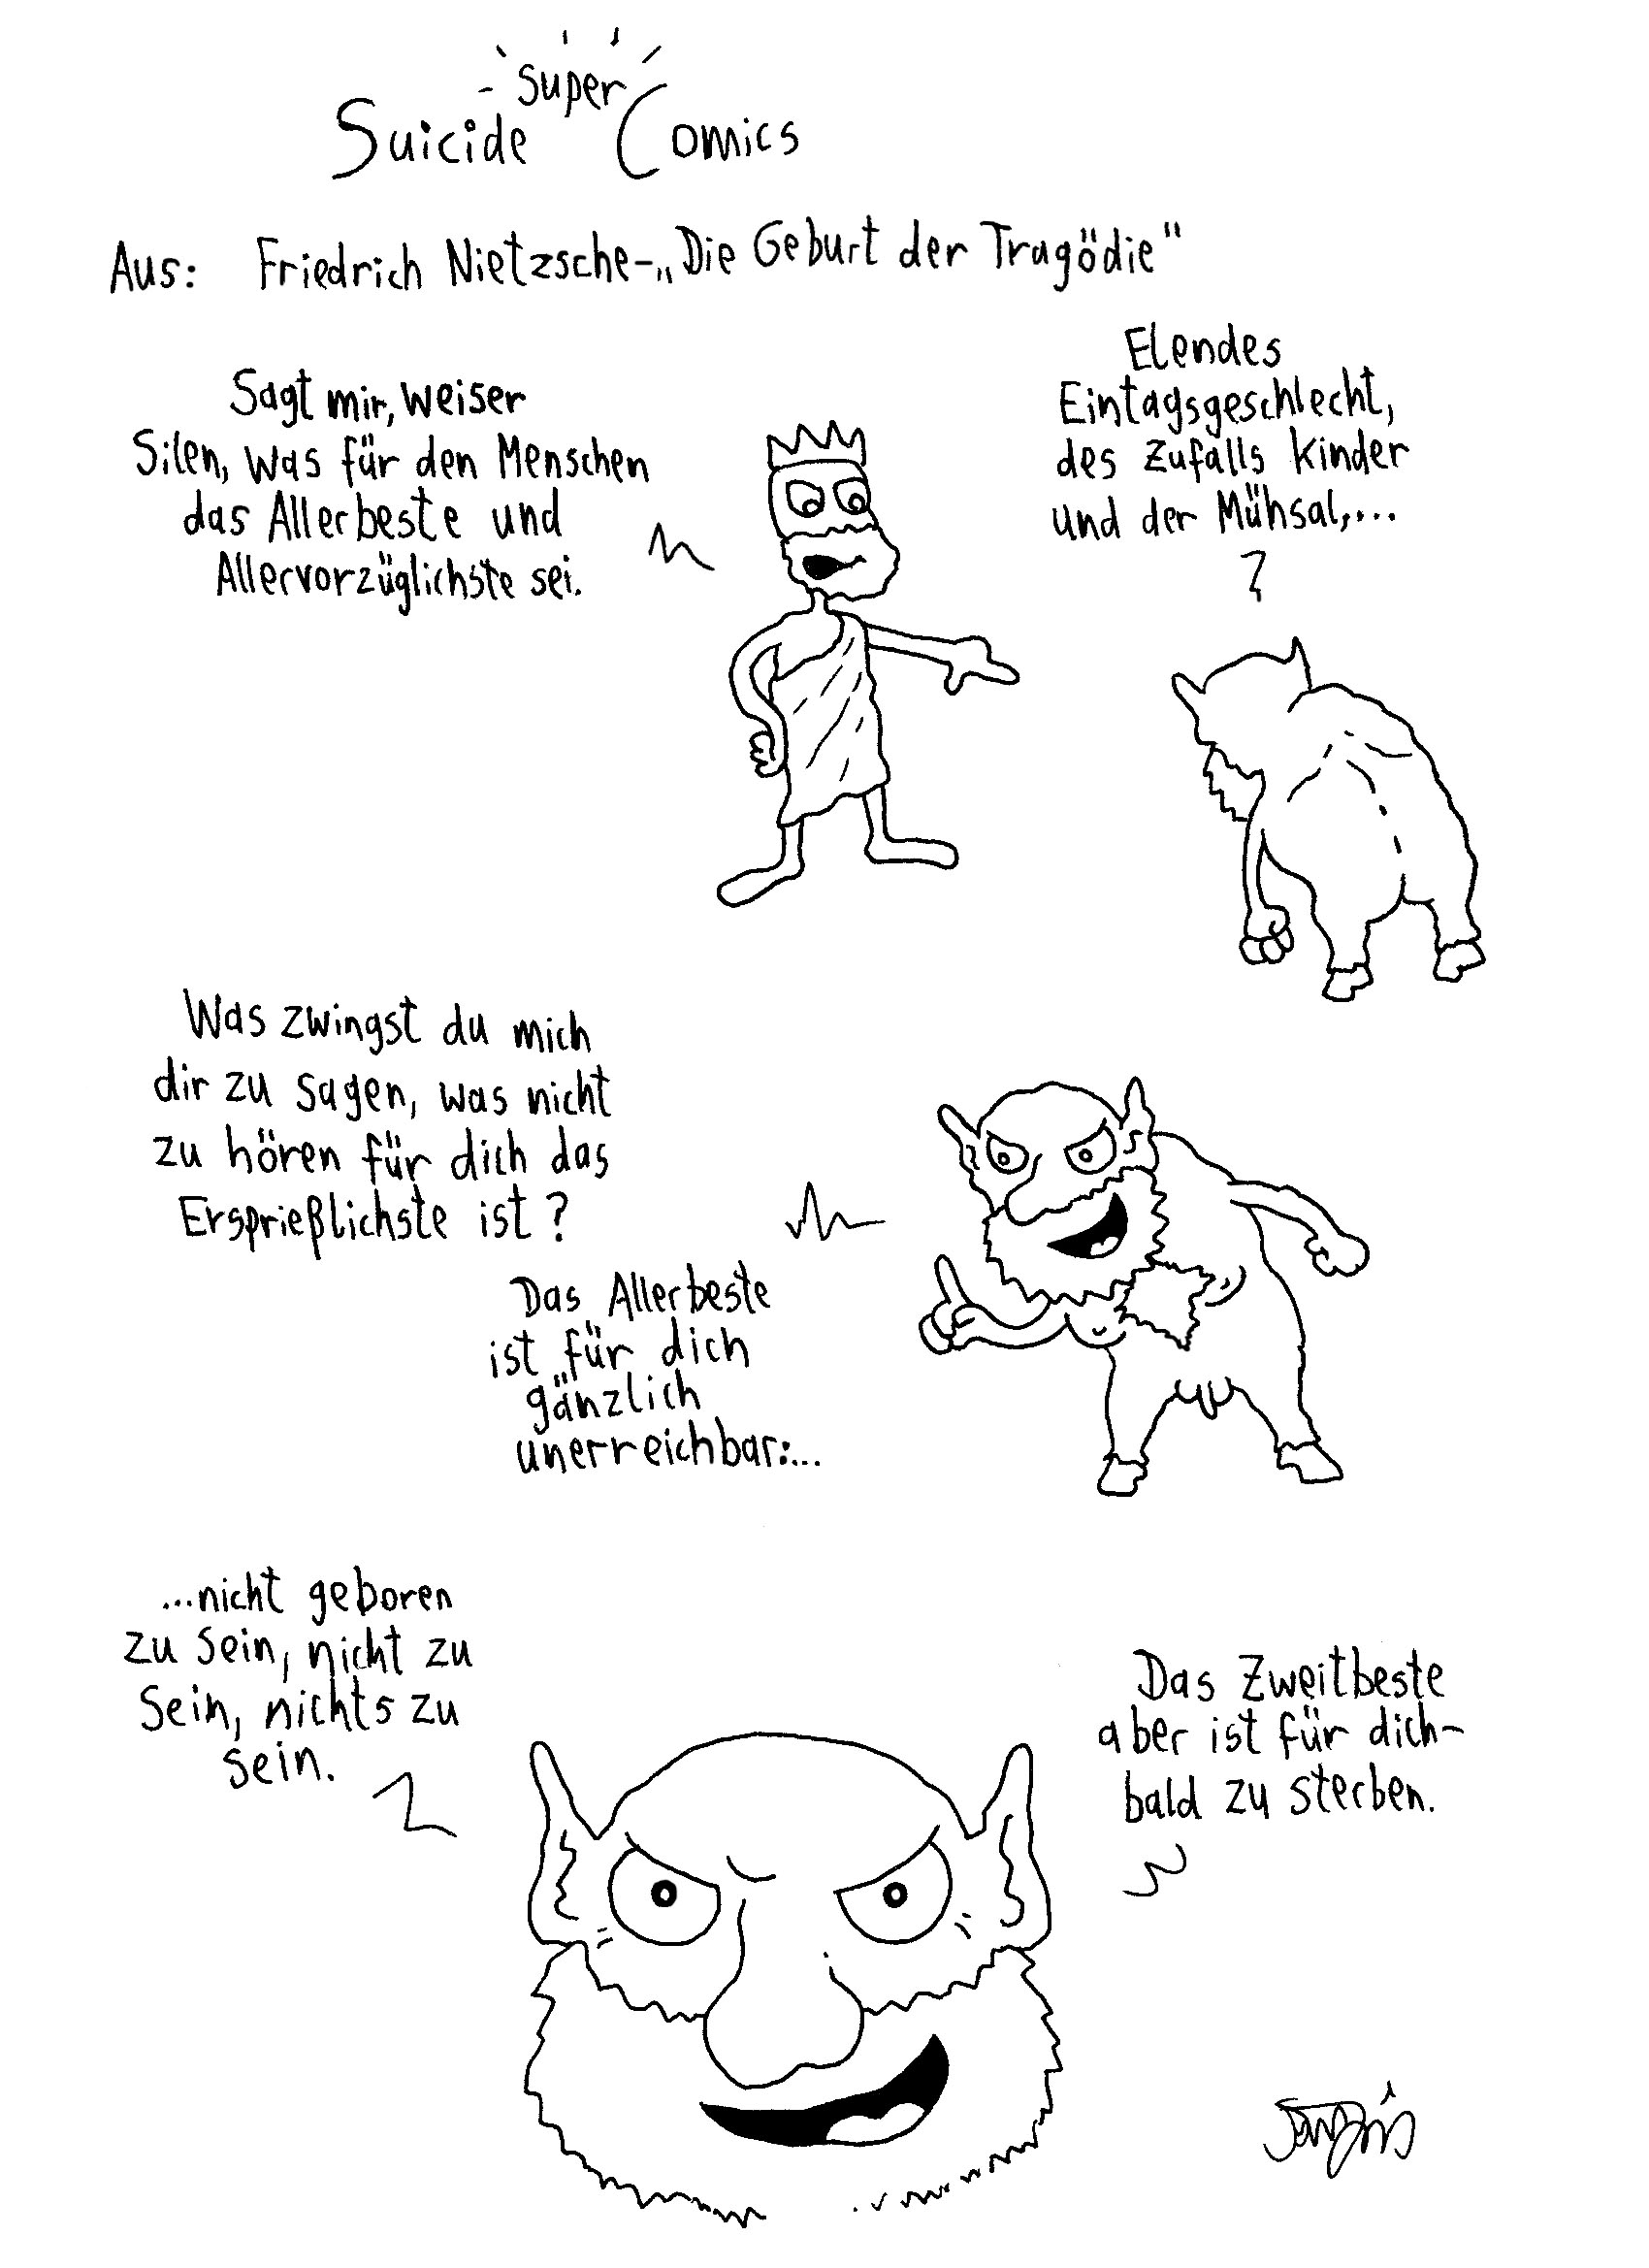 Super
Suicide Comics
Aus: Friedrich Nietzsche-„Die Geburt der Tragödie“
Sagt mir, weiser
Silen, was für den Menschen
das Allerbeste und
Allervorzüglichste sei.
Elendes
Eintagsgeschlecht,
des Zufalls Kinder
und der Mühsal,...
Was zwingst du mich
dir zu sagen, was nicht
zu hören für dich das
Ersprießlichste ist?
Das Allerbeste
ist für dich
gänzlich
unerreichbar:...
...nicht geboren
zu sein, nicht zu
sein, nichts zu
sein.
Das Zweitbeste
aber ist für dich-
bald zu sterben.